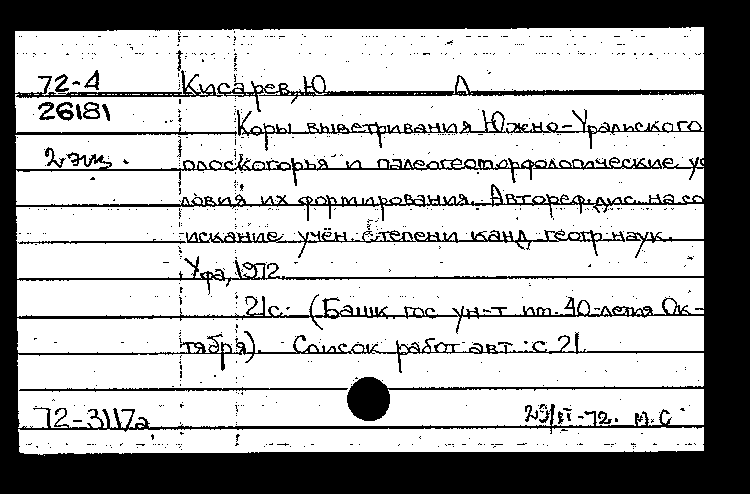 72-4 Кисарев, Ю Л
26181
Коры выветривания Южно-Уральского
2 экз. плоскогорья и палеогеоморфологические ус
ловия их формирования. Автореф. дис. на со
искание учён. степени канд. геогр. наук.
Уфа, 1972.
21с. (Башк. гос. ун-т им. 40-летия Ок-
тября). Список работ авт.: с. 21.
72-3117а 29/VI-72. М.С